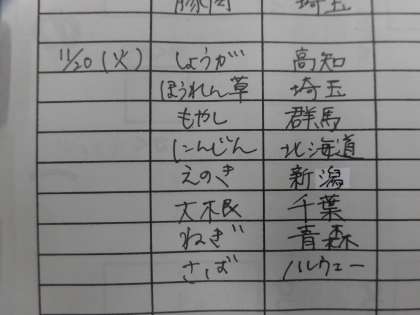 豚肉 埼玉
11/20(火) しょうが 高知
ほうれん草 埼玉
もやし 群馬
にんじん 北海道
えのき 新潟
大根 千葉
ねぎ 青森
さば ノルウェー